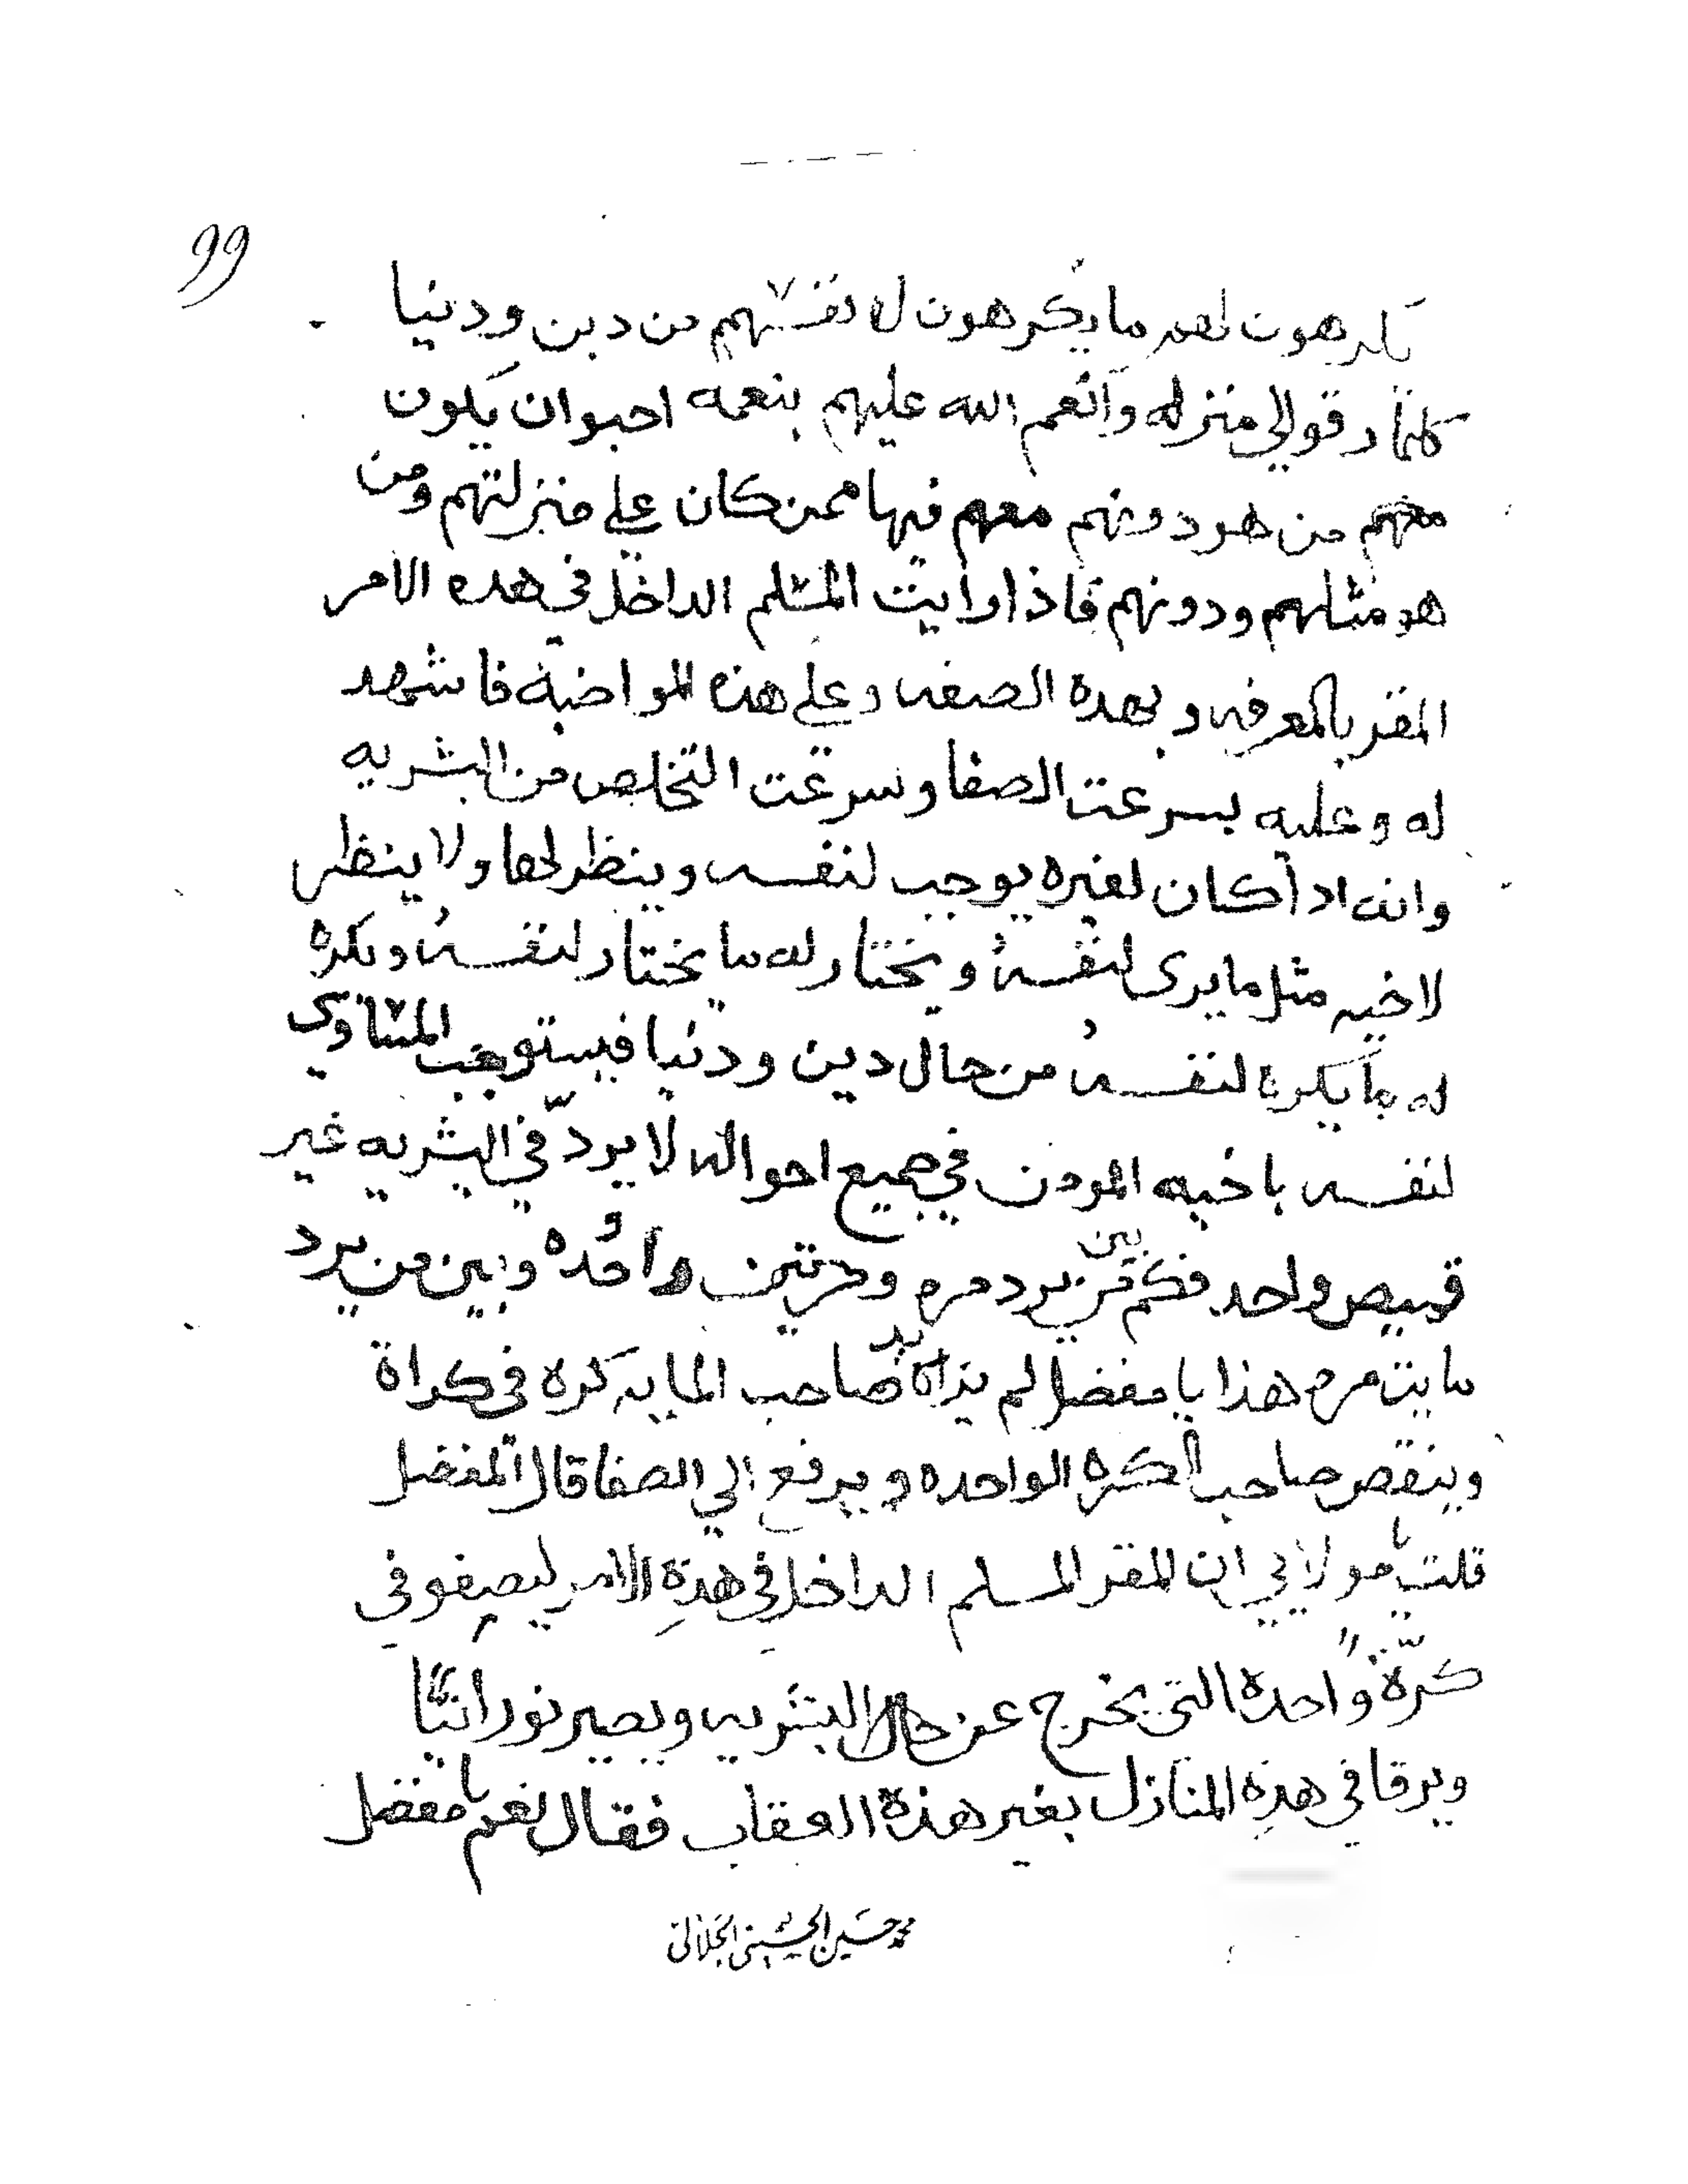 99
يكرهون لهم ما يكرهون لانفسهم من دين ودنيا
كلما رقوا الي منزله وانعم الله عليهم بنعمه احبوا ان يكون
معهم من هو دونهم معهم فيها ممن كان علي منزلتهم ومن
هو مثلهم ودونهم فاذا رايت المسلم الداخل في هده الامر
المقر بالمعرفه وبهدة الصفه وعلي هذه المواضبة فاشهد
له وعليه بسرعت الصفا وسرعت التخلص من البشريه
وانه ادا كان لغيره يوجب لنفسه وينظر لها ولا ينظر
لاخيه مثل ما يرى لنفسه ويختار له ما يختار لنفسه ويكره
له ما يكره لنفسه من حال دين ودنيا فيستوجب المساوي
لنفسه باخيه المومن في جميع احواله لا يردّ في البشريه غير
قميص واحد فكم بين من يرد مره ومرتين واحده وبين من يرد
مايتن مره هذا يا مفضل لم يزاد صاحب المايه كره في كراة
وينقص صاحب الكره الواحده ويرفع الي الصفا قال المفضل
قلت يا مولاي ان المقر المسلم الداخل في هذة الامر ليصفو في
كرّة واحدة التي يخرج عن حال البشريه ويصير نورانيًا
ويرقا في هذه المنازل بغير هذة العقاب فقال نعم يا مفضل
محمد حسين الحسيني الجلالي